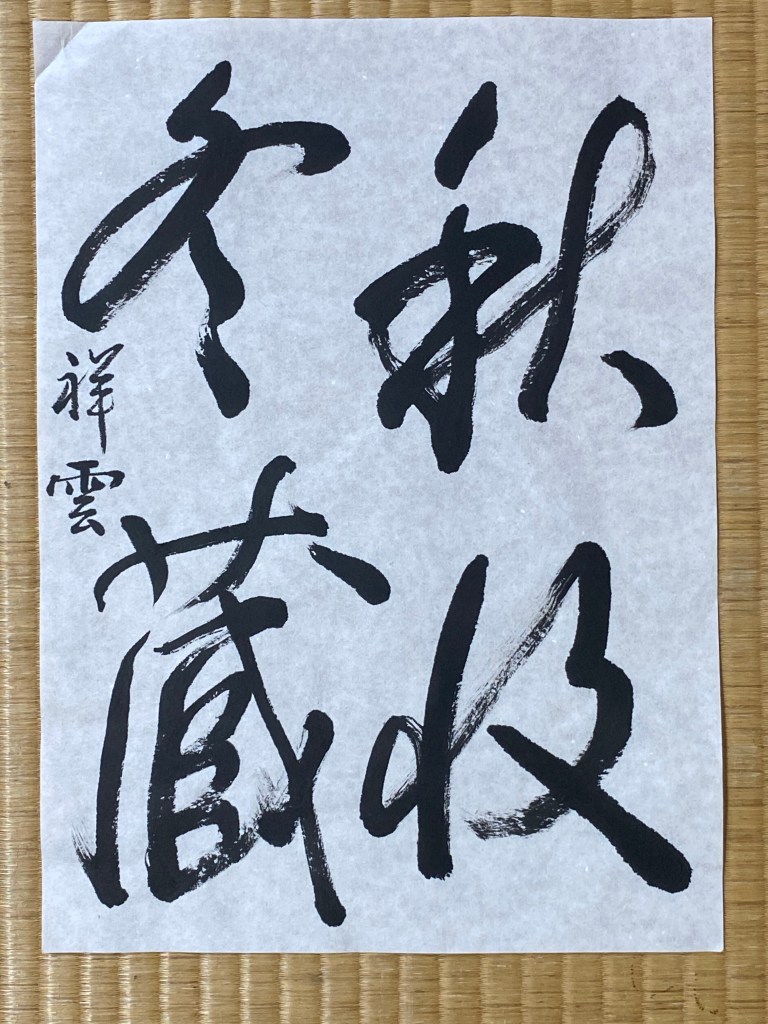 秋收
冬蔵
祥雲